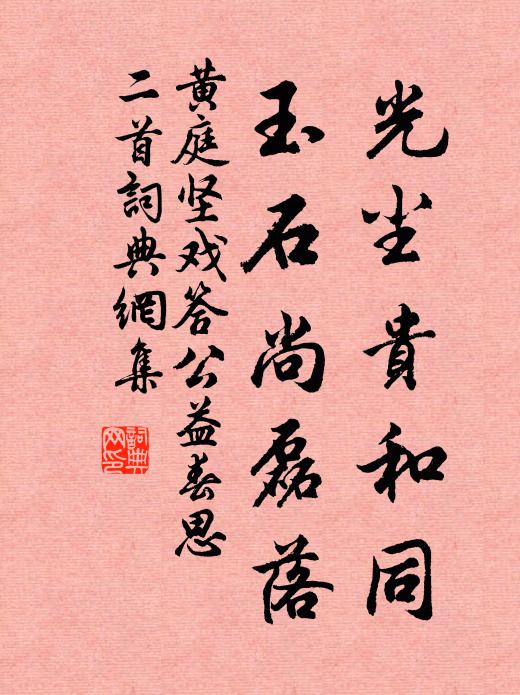 光尘貴和同
玉石尚磊落
黄庭坚戏答公益春思
二首詞典網集
詞典
网印